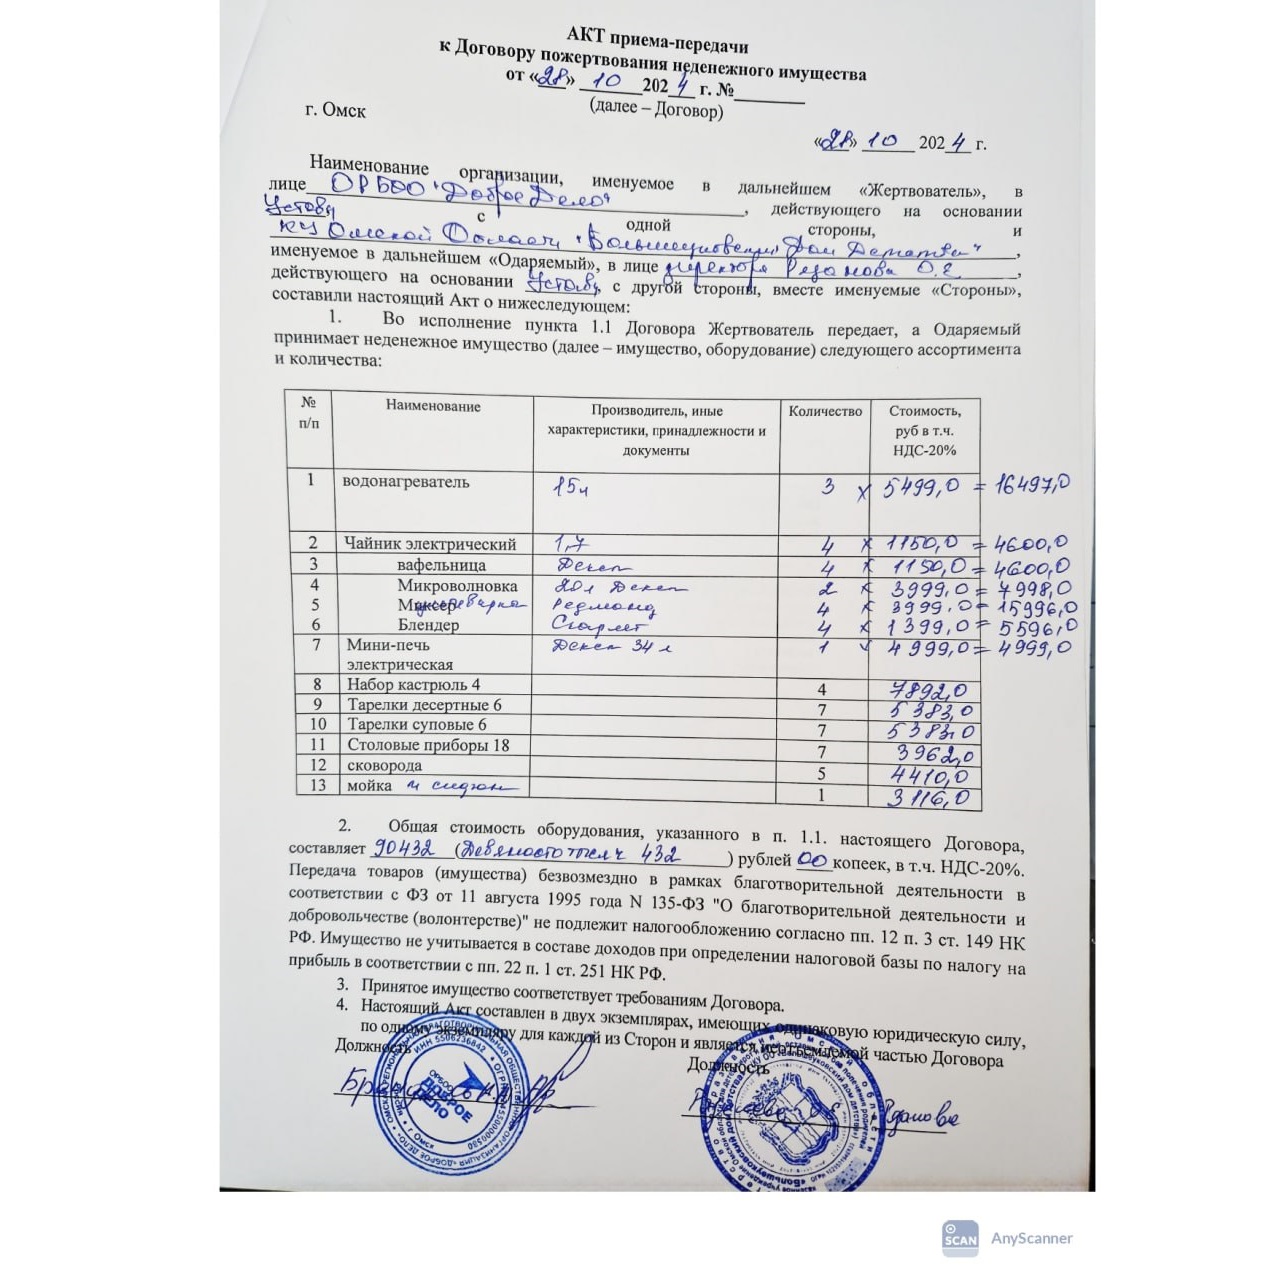 АКТ приема-передачи
к Договору пожертвования неденежного имущества
от «28» 10 2024 г. №
(далее – Договор)
г. Омск
«28» 10 2024 г.
Наименование организации, именуемое в дальнейшем «Жертвователь», в
лице ОРБОО "Доброе Дело", действующего на основании
Уставу с одной стороны, и
КУ Омской Области "Большеуковский Дом Детства",
именуемое в дальнейшем «Одаряемый», в лице директора О.Е,
действующего на основании Уставу, с другой стороны, вместе именуемые «Стороны»,
составили настоящий Акт о нижеследующем:
1. Во исполнение пункта 1.1 Договора Жертвователь передает, а Одаряемый
принимает неденежное имущество (далее – имущество, оборудование) следующего ассортимента
и количества:
№ п/п Наименование Производитель, иные характеристики, принадлежности и документы Количество Стоимость, руб в т.ч. НДС-20%
1 водонагреватель 15л 3 x 5499,0 = 16497,0
2 Чайник электрический 1,7 4 x 1150,0 = 4600,0
3 вафельница Дексп 4 x 1150,0 = 4600,0
4 Микроволновка 20л Дексп 2 x 3999,0 = 7998,0
5 Миксер Редмонд 4 x 3999,0 = 15996,0
6 Блендер Скарлет 4 x 1399,0 = 5596,0
7 Мини-печь Дексп 34 л 1 x 4999,0 = 4999,0
электрическая
8 Набор кастрюль 4 4 7892,0
9 Тарелки десертные 6 7 5383,0
10 Тарелки суповые 6 7 5383,0
11 Столовые приборы 18 7 3962,0
12 сковорода 5 4410,0
13 мойка 1 3116,0
2. Общая стоимость оборудования, указанного в п. 1.1. настоящего Договора,
составляет 90432 (Девяносто тысяч 432) рублей 00 копеек, в т.ч. НДС-20%.
Передача товаров (имущества) безвозмездно в рамках благотворительной деятельности в
соответствии с ФЗ от 11 августа 1995 года N 135-ФЗ "О благотворительной деятельности и
добровольчестве (волонтерстве)" не подлежит налогообложению согласно пп. 12 п. 3 ст. 149 НК
РФ. Имущество не учитывается в составе доходов при определении налоговой базы по налогу на
прибыль в соответствии с пп. 22 п. 1 ст. 251 НК РФ.
3. Принятое имущество соответствует требованиям Договора.
4. Настоящий Акт составлен в двух экземплярах, имеющих одинаковую юридическую силу,
по одному экземпляру для каждой из Сторон и является неотъемлемой частью Договора
Должность
Должность
ИНН 5506236842
ОРБОО
ДОБРОЕ
ДЕЛО
г. Омск
SCAN AnyScanner